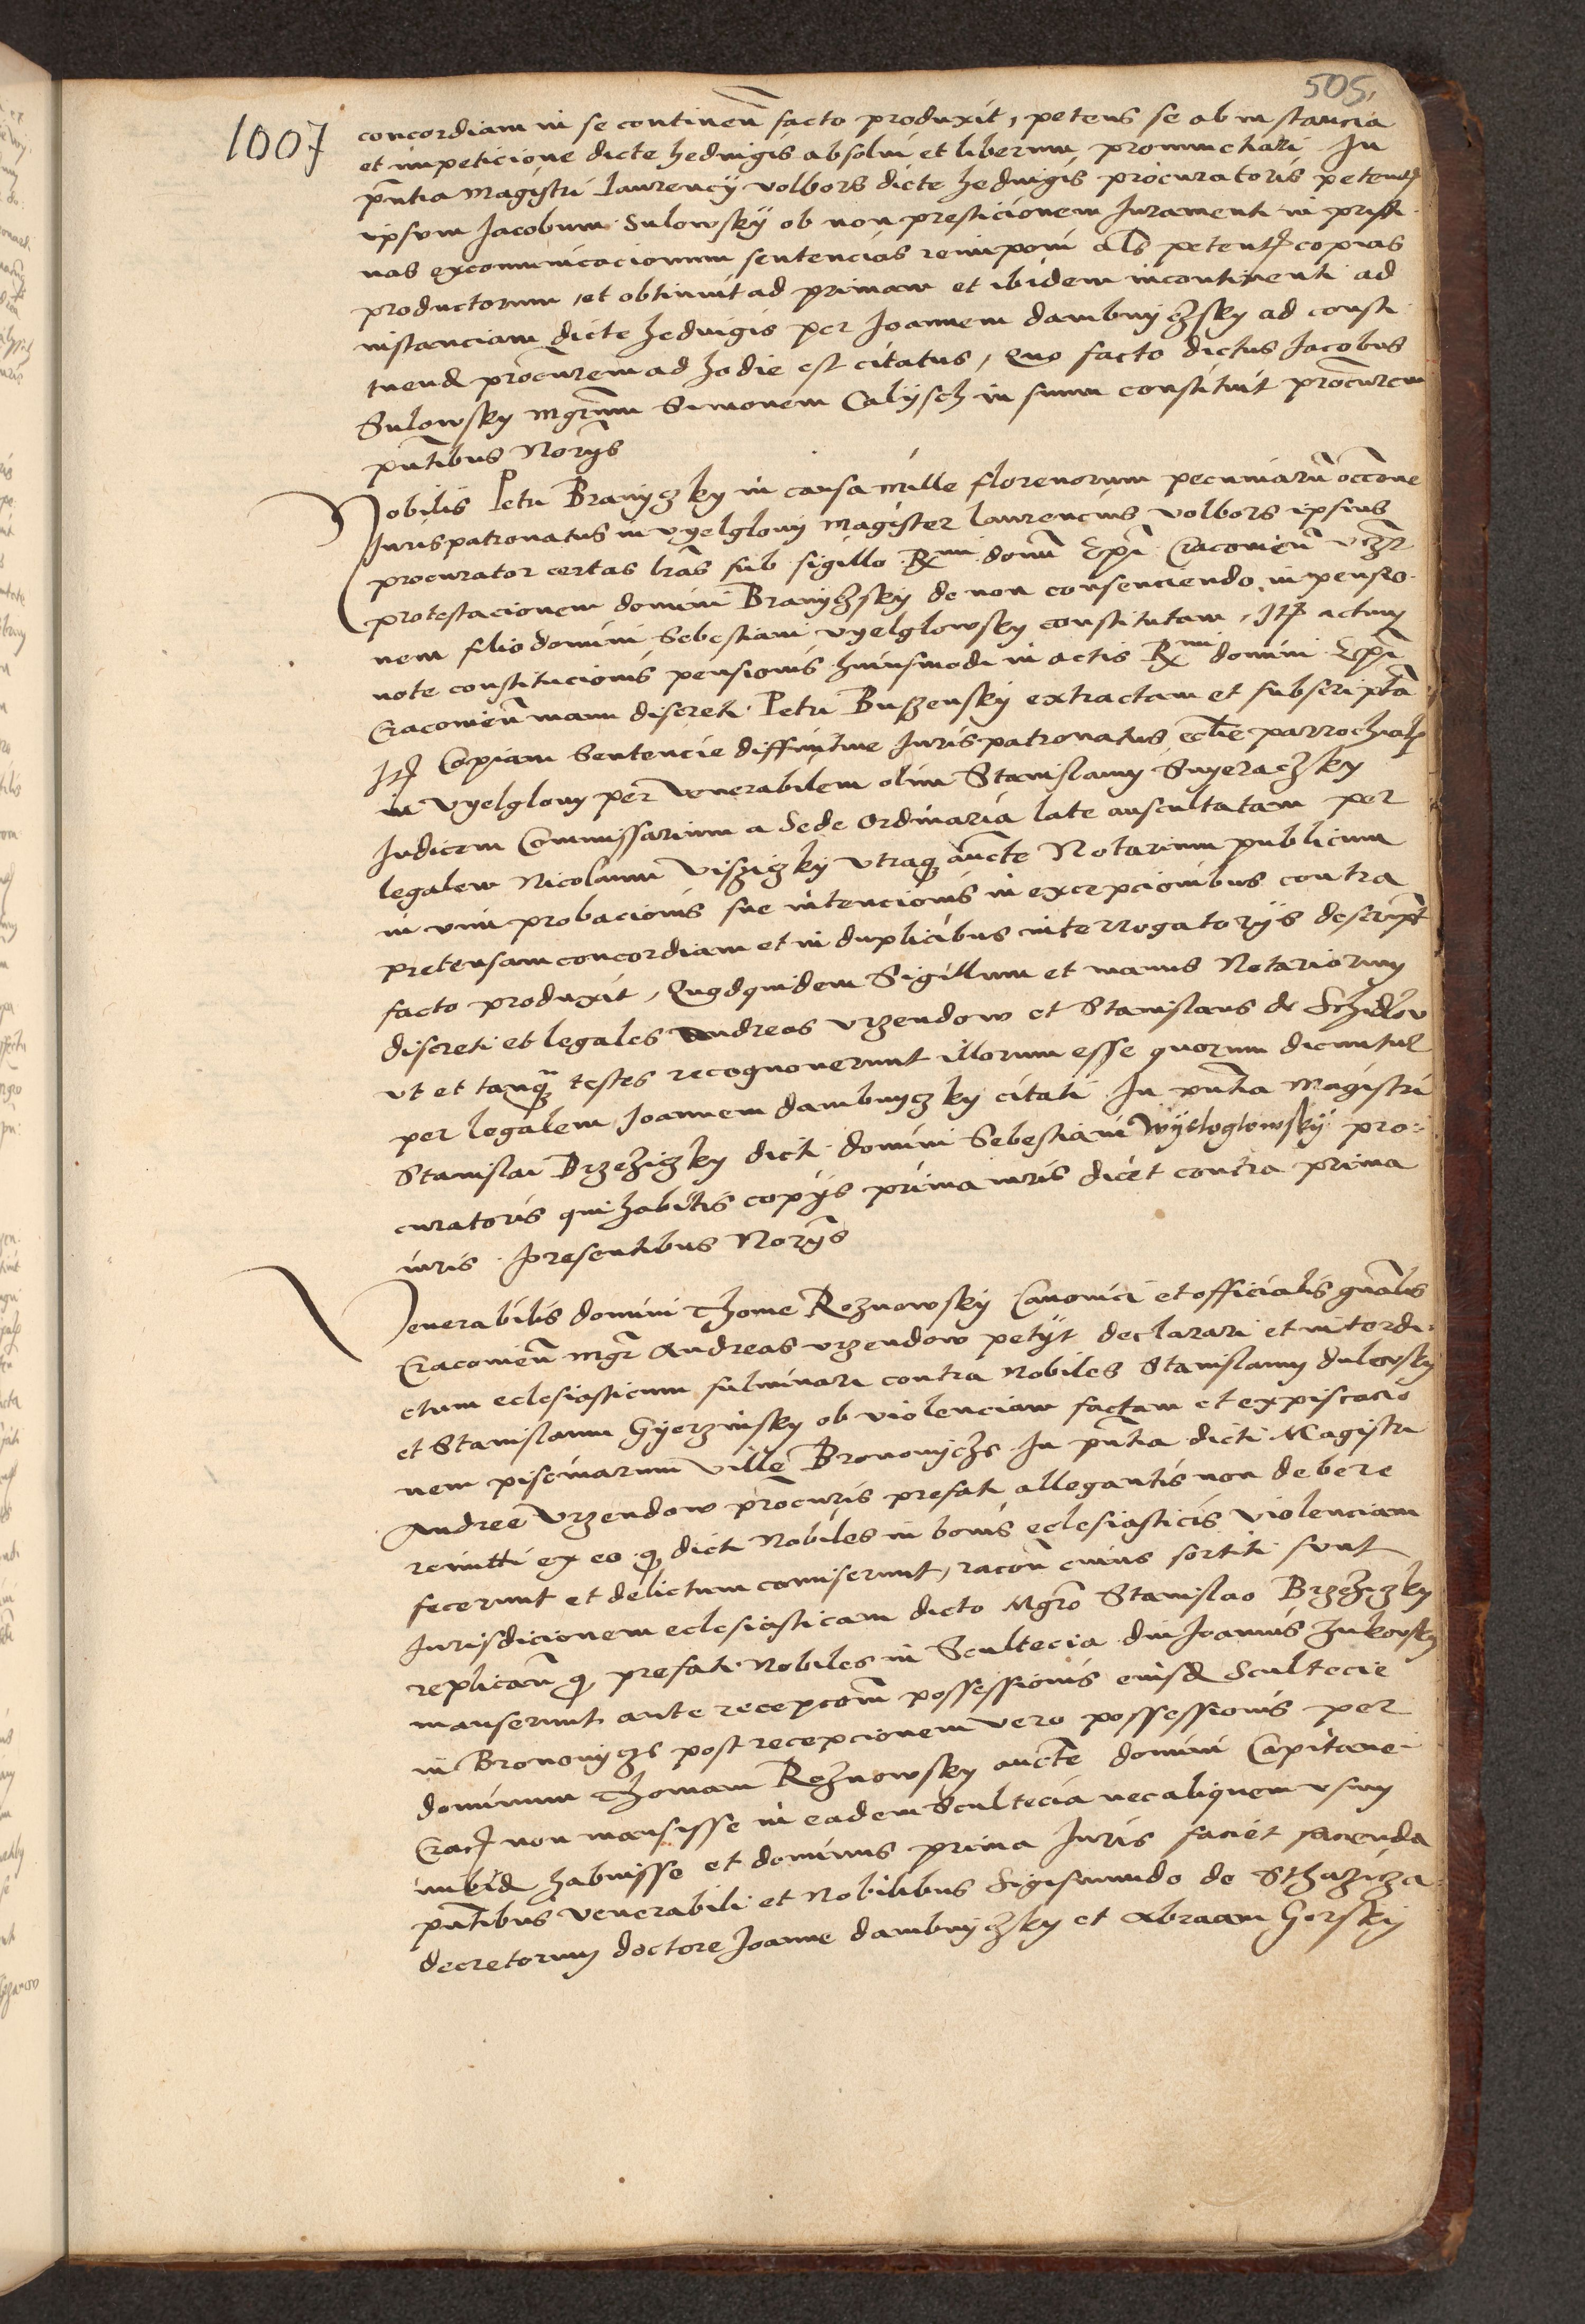 505,
1007
concordiam in se continen̄ facto produxit, petens se ab instancia
et impeticione dicte hedvigis absolui et liberum pronunctiari In
pn̄tia Magistri laurencÿ volbors dicte hedvigis procuratoris petentꝭ
ipsum Jacobum Sulowskÿ ob non presticionem Juramenti in pristi
nas excommunicacionum sentencias reimponi als petentꝭ copias
productorum, et obtinuit ad primam et ibidem incontinenti ad
instanciam dicte hedvigis per Joannem dambnÿczsky ad consti
tuend procurem ad hodie est citatus, Quo facto dictus Jacobus
Sulowsky Mgrum Simonem Calÿsch in suum constituit procurem
pn̄tibus Norÿs
Nobilis Petri Branÿczky in causa mille florenorum pecuniarū occone
Jurispatronatus in vyelglowÿ Magister laurencius volbors ipsius
procurator certas lrās sub sigillo Rmi domī Epī Cracouien̄ vczꝫ
protestacionem domini Branÿczskÿ de non consenciendo in pensio
nem filio domini Sebestiani vyelglowsky constitutam, Itꝭ actum
note constitucionis pensionis huiusmodi in actis Rmi domini Epī
Cracouien̄ manu discreti Petri Buszenskÿ extractam et subscriptā
Itꝭ Copiam Sentencie diffinitiue Jurispatronatus ecclie parrochialꝭ
in vyelglowy per venerabilem olim Stanislaum Snyeraczky
Judicem Commissarium a Sede Ordinaria late auscultatam per
legalem Nicolaum Visziczkÿ vtraqꝫ aucte Notarium publicum
in vim probacionis sue intencionis in excepcionibus contra
pretensam concordiam et in duplicibus interrogatorÿs descript
facto produxit, Quodquidem Sigillum et manus Notariorum
discreti et legales Andreas vrzendow et Stanislaus de Schidlow
vt et tanqꝫ testes recognouerunt illorum esse quorum dicuntur
per legalem Joannem dambnyczky citati In pn̄tia Magistri
Stanislai Brzeziczky dicti domini Sebestiani Wyeloglowskÿ pro
curatoris qui habitis copÿs prima iuris dicet contra prima
iuris Presentibus Norÿs
Venerabilis domini Thome Roznowskÿ Canonici et officialis gnālis
Cracouien̄ Mgr Andreas vrzendow petÿt declarari et interdi
ctum eclesiasticum fulminari contra Nobiles Stanislaum dulowsky
et Stanislaum Gyerzinsky ob violenciam factam et expiscacio
nem piscinarum ville Bronowÿczs In pn̄tia dicti Magistri
Andree vrzendow procuris prefati allegantis non debere
remitti ex eo qꝫ dicti Nobiles in bonis eclesiasticis violenciam
fecerunt et delictum comiserunt, racōn cuius sortiti sunt
Jurisdicionem eclesiasticam dicto Mgro Stanislao Brzeziczky
replican̄ qꝫ prefati Nobiles in Scultecia dn̄i Joannis Zukowsky
manserunt ante recepcom possessionis eiusd Scultecie
in Bronowÿczs post recepcionem vero possessionis per
dominum Thomam Roznowsky aucte domini Capitanei
Cracꝭ non mansisse in eadem Scultecia nec aliquem vsum
inibid habuisse et dominus prima Juris faciet facienda
pn̄tibus venerabili et Nobilibus Sigismundo de Sthaziczza
decretorum doctore Joanne dambnÿczky et Abraam Gorskÿ